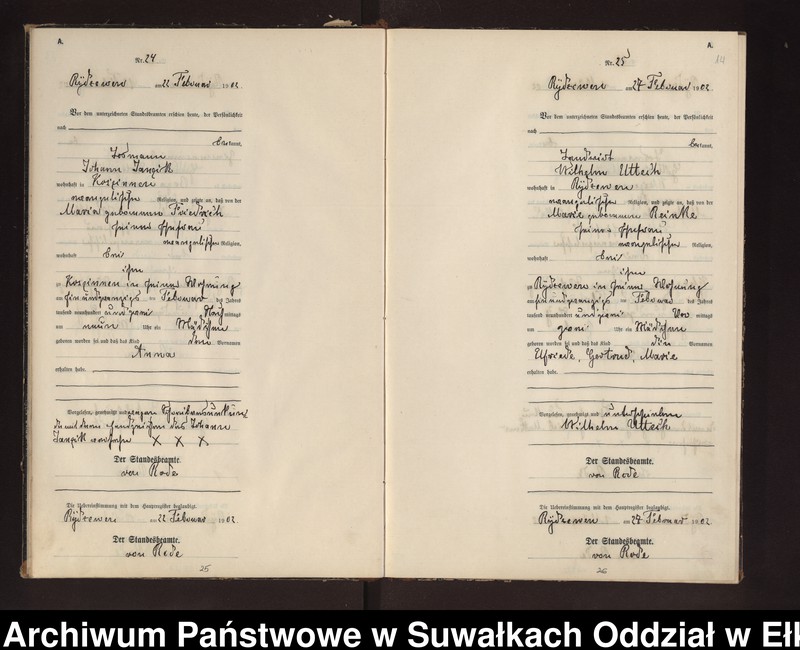 A.
Nr. 24
Rydzewen am 22 Februar 1902
Vor dem unterzeichneten Standesbeamten erschien heute, der Persönlichkeit
nach
bekannt,
Losmann
Johann
wohnhaft in Koszinnen
evangelischer Religion, und zeigte an, daß von der
Maria geborenen Friedrich
seiner Ehefrau
evangelischer Religion,
wohnhaft bei
ihm
zu Koszinnen in seiner Wohnung
am einundzwanzigs ten Februar des Jahres
tausend neunhundert und zwei Nach mittags
um neun Uhr ein Mädchen
geboren worden sei und daß das Kind den Vornamen
Anna
erhalten habe.
Vorgelesen, genehmigt und wegen Schreibensunkunde
mit dem Handzeichen des Johann
versehen X X X
Der Standesbeamte.
von Rode
Die Uebereinstimmung mit dem Hauptregister beglaubigt.
Rydzewen am 22 Februar 1902.
Der Standesbeamte.
von Rode
25
A.
Nr. 25
Rydzewen am 27 Februar 1902
Vor dem unterzeichneten Standesbeamten erschien heute, der Persönlichkeit
nach
bekannt,
Landwirt
Wilhelm Utteich
wohnhaft in Rydzewen
evangelischer Religion, und zeigte an, daß von der
Marie geborenen Reinke
seiner Ehefrau
evangelischer Religion,
wohnhaft bei
ihm
zu Rydzewen in seiner Wohnung
am einundzwanzigs ten Februar des Jahres
tausend neunhundert und zwei Vor mittags
um zwei Uhr ein Mädchen
geboren worden sei und daß das Kind die Vornamen
Elfriede, Gertrud, Marie
erhalten habe.
Vorgelesen, genehmigt und unterschrieben
Wilhelm Utteich
Der Standesbeamte.
von Rode
Die Uebereinstimmung mit dem Hauptregister beglaubigt.
Rydzewen am 27 Februar 1902.
Der Standesbeamte.
von Rode
26
Archiwum Państwowe w Suwałkach Oddział w Ełk